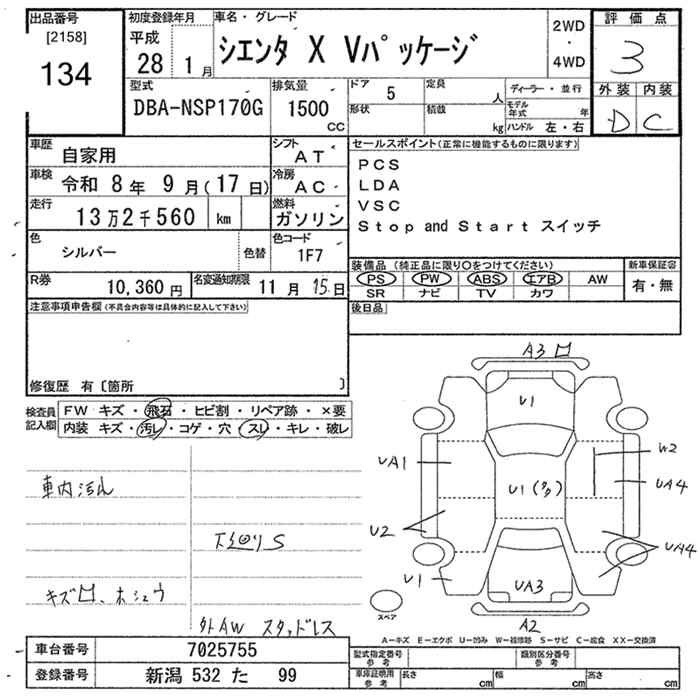 出品番号
[2158]
134
初度登録年月
平成
28 1月
車名・グレード
シエンタ X Vパッケージ
2WD
・
4WD
評価点
3
外装 内装
D C
型式
DBA-NSP170G
排気量
1500
CC
ドア
5
定員
人
形状
積載
kg
ディーラー・並行
モデル年式 年
ハンドル 左・右
車歴
自家用
シフト
AT
車検
令和 8年 9月(17日)
冷房
AC
走行
13万2千560 km
燃料
ガソリン
色
シルバー
色替
色コード
1F7
R券
10,360円
名変通知期限
11月 15日
セールスポイント(正常に機能するものに限ります)
PCS
LDA
VSC
Stop and Start スイッチ
装備品 (純正品に限り○をつけてください)
新車保証書
PS PW ABS エアB AW
有・無
SR ナビ TV カワ
後日品
注意事項申告欄(不具合内容等は具体的に記入して下さい)
修復歴 有〔箇所 〕
検査員記入欄
FW キズ・飛石・ヒビ割・リペア跡・×要
内装 キズ・汚レ・コゲ・穴・スレ・キレ・破レ
車内汚れ
下廻りS
外AW スタッドレス
A3
U1
UA1
W2
U1
UA4
U2
UA4
U1
UA3
A2
スペア
A-キズ E-エクボ U-凹み W-補修跡 S-サビ C-腐食 XX-交換済
車台番号
7025755
登録番号
新潟 532 た 99
型式指定番号
参考
類別区分番号
参考
車庫証明用
参考
長さ cm
幅 cm
高さ cm